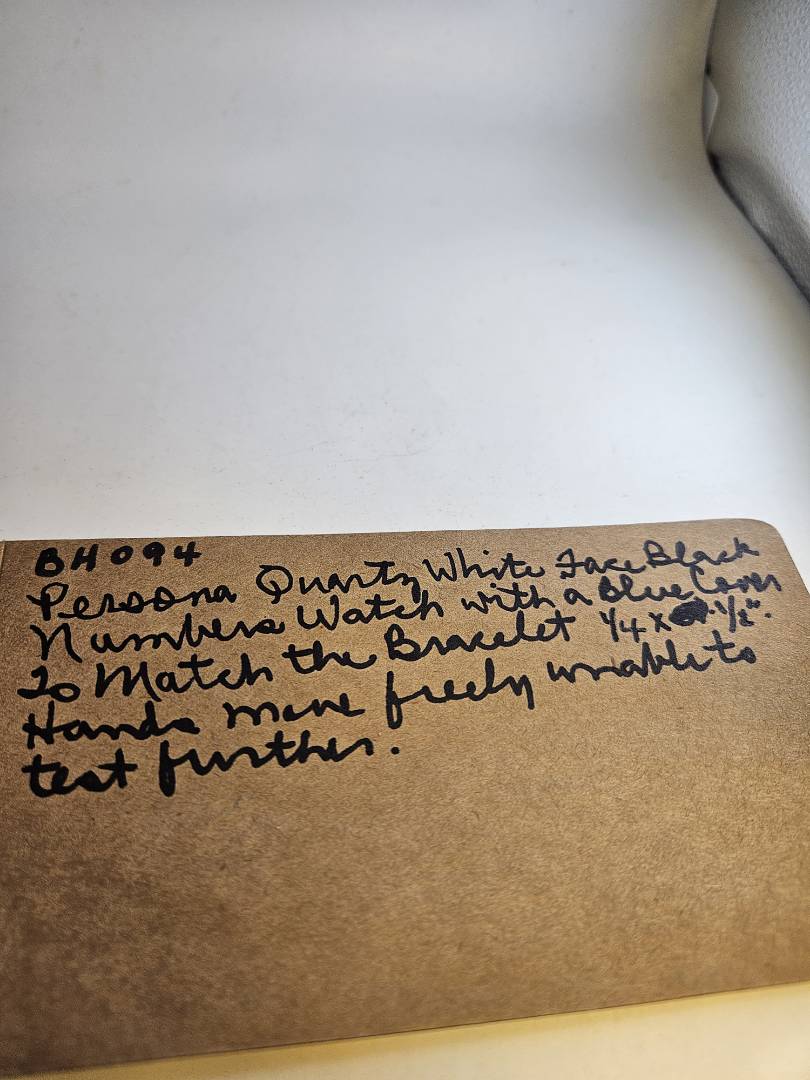 BH094
Persona Quartz White Face Black
Numbers Watch with a Blue Cover
To Match the Bracelet 1/4 x 1/2".
Hands move freely unable to
test further.